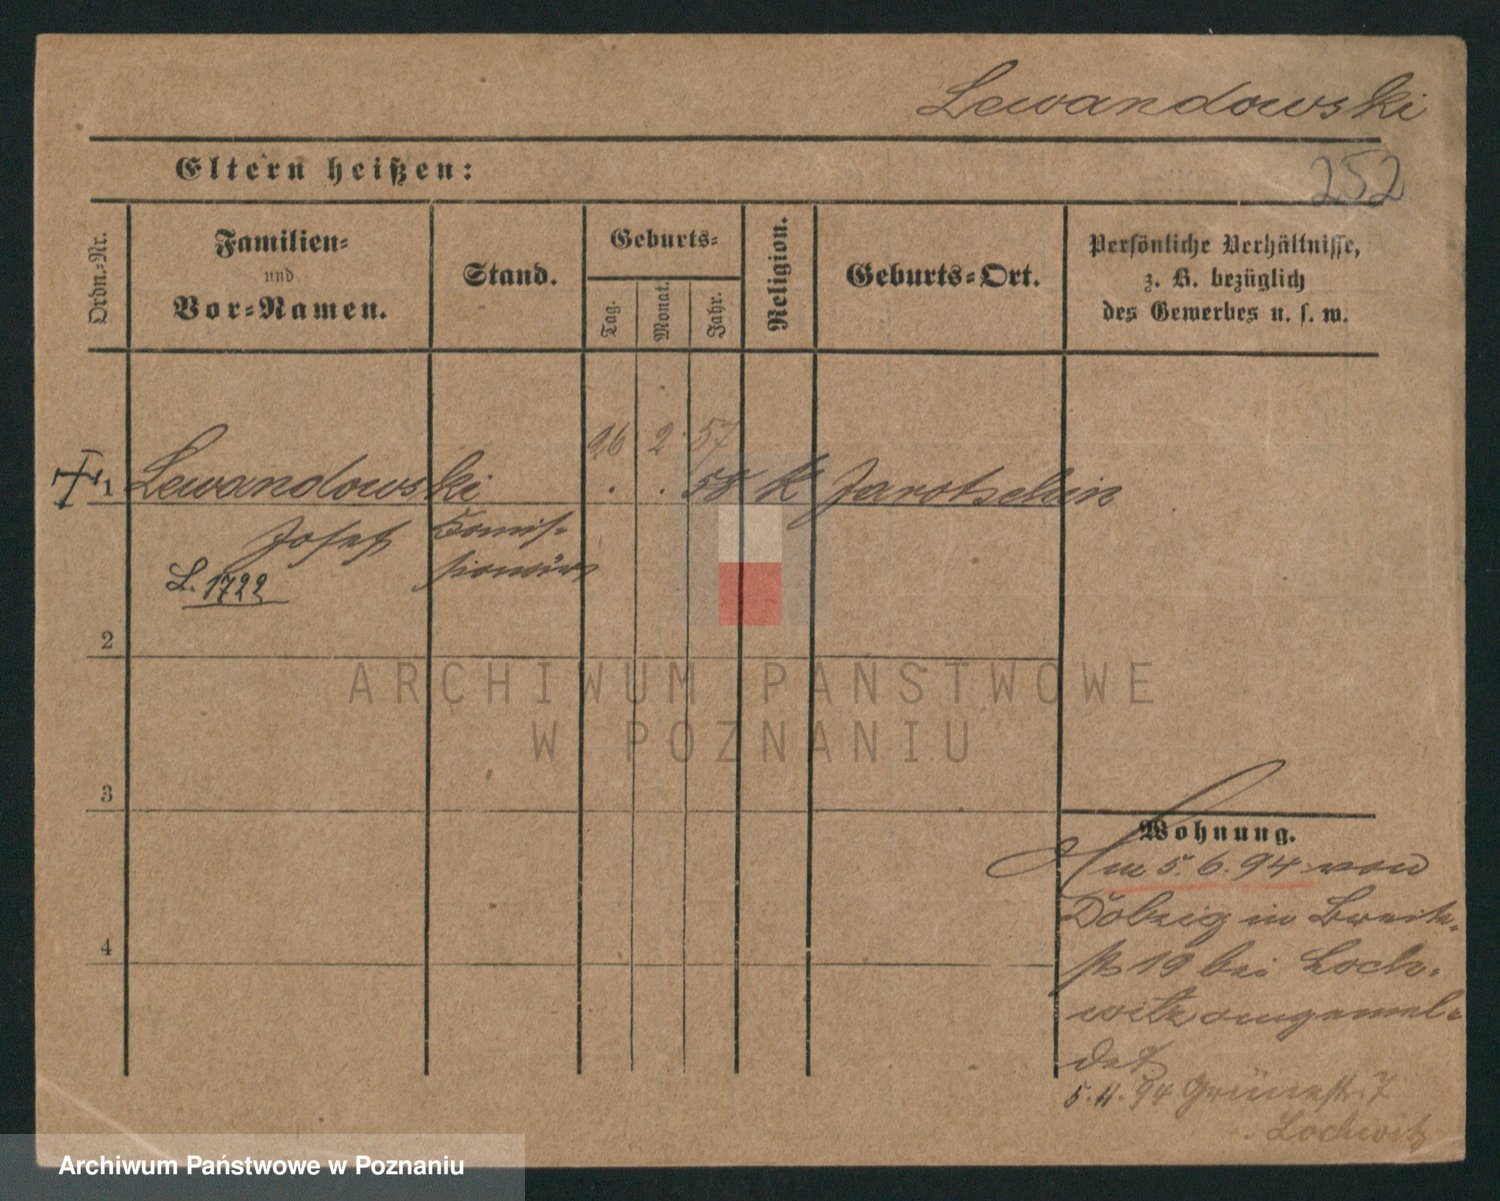 Lewandowski
252
Eltern heißen:
Ordn.-Nr.
Familien-
und
Vor-Namen.
Stand.
Geburts-
Tag.
Monat.
Jahr.
Religion.
Geburts-Ort.
Persönliche Verhältnisse,
z. B. bezüglich
des Gewerbes u. s. w.
26 2 57
1 Lewandowski . . 58 K Jarotschin
Josef
Komis-
sionär
L. 1722
2
ARCHIWUM PAŃSTWOWE
W POZNANIU
3
Wohnung.
Am 5. 6. 94 von
Dolzig in Breite-
str 19 bei Loch-
witz angemel-
det
4
5. 11. 94 Grünestr. 7
Lochwitz
Archiwum Państwowe w Poznaniu